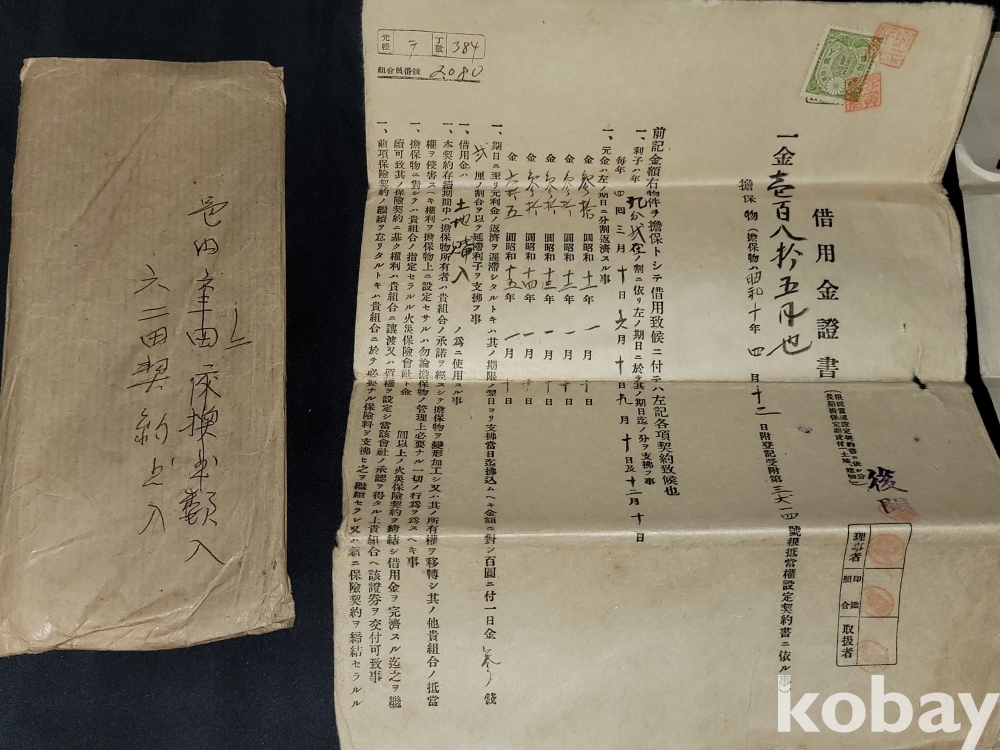 元帳
テ
丁数
384
組合員番號 2080
借用金證書
後
理事者
印鑑照合
取扱者
一金壹百八拾五円也
擔保物(擔保物ハ昭和十年四月十二日附登記受附第三六一四號根抵當權設定契約書ニ依ル
前記金額右物件ヲ擔保トシテ借用致候ニ付テハ左記各項契約致候也
一、利子ハ年 ノ割ニ依リ左ノ期日ニ於テ其ノ期日迄ノ分ヲ支拂フ事
毎年 四回 三月十日 六月十日 九月十日及十二月十日
一、元金ハ左ノ期日ニ分割返濟スル事
金 圓昭和十一年一月十日
金 圓昭和十二年一月十日
金 圓昭和十三年一月十日
金 圓昭和十四年一月十日
金六十五圓昭和十五年一月十日
一、期日ニ至リ元利金ノ返濟ヲ遲滯シタルトキハ其ノ期限ノ翌日ヨリ支拂當日迄拂込ムヘキ金額ニ對シ百圓ニ付一日金 錢
厘ノ割合ヲ以テ延滯利子ヲ支拂フ事
一、借用金ハ 土地購入 ノ爲ニ使用スル事
一、本契約存續期間中ハ擔保物所有者ハ貴組合ノ承諾ヲ經スシテ擔保物ヲ變形加工シ又ハ其ノ所有權ヲ移轉シ其ノ他貴組合ノ抵當
權ヲ侵害スヘキ權利ヲ擔保物上ニ設定セサルハ勿論擔保物ノ管理上必要ナル一切ノ行爲ヲ爲スヘキ事
一、擔保物ニ對シテハ貴組合ノ指定セラルル火災保險會社ト金 圓以上ノ火災保險契約ヲ締結シ借用金ヲ完濟スル迄之ヲ繼
續可致其ノ保險契約ニ基ク權利ハ貴組合ニ讓渡又ハ質權ヲ設定シ當該會社ノ承認ヲ得タル上貴組合ヘ該證券ヲ交付可致事
一、前項保險契約ノ繼續ヲ怠リタルトキハ貴組合ニ於テ必要ナル保險料ヲ支拂ヒ之ヲ繼續セラレ又ハ新ニ保險契約ヲ締結セラルル
書類入
契約書入
kobay